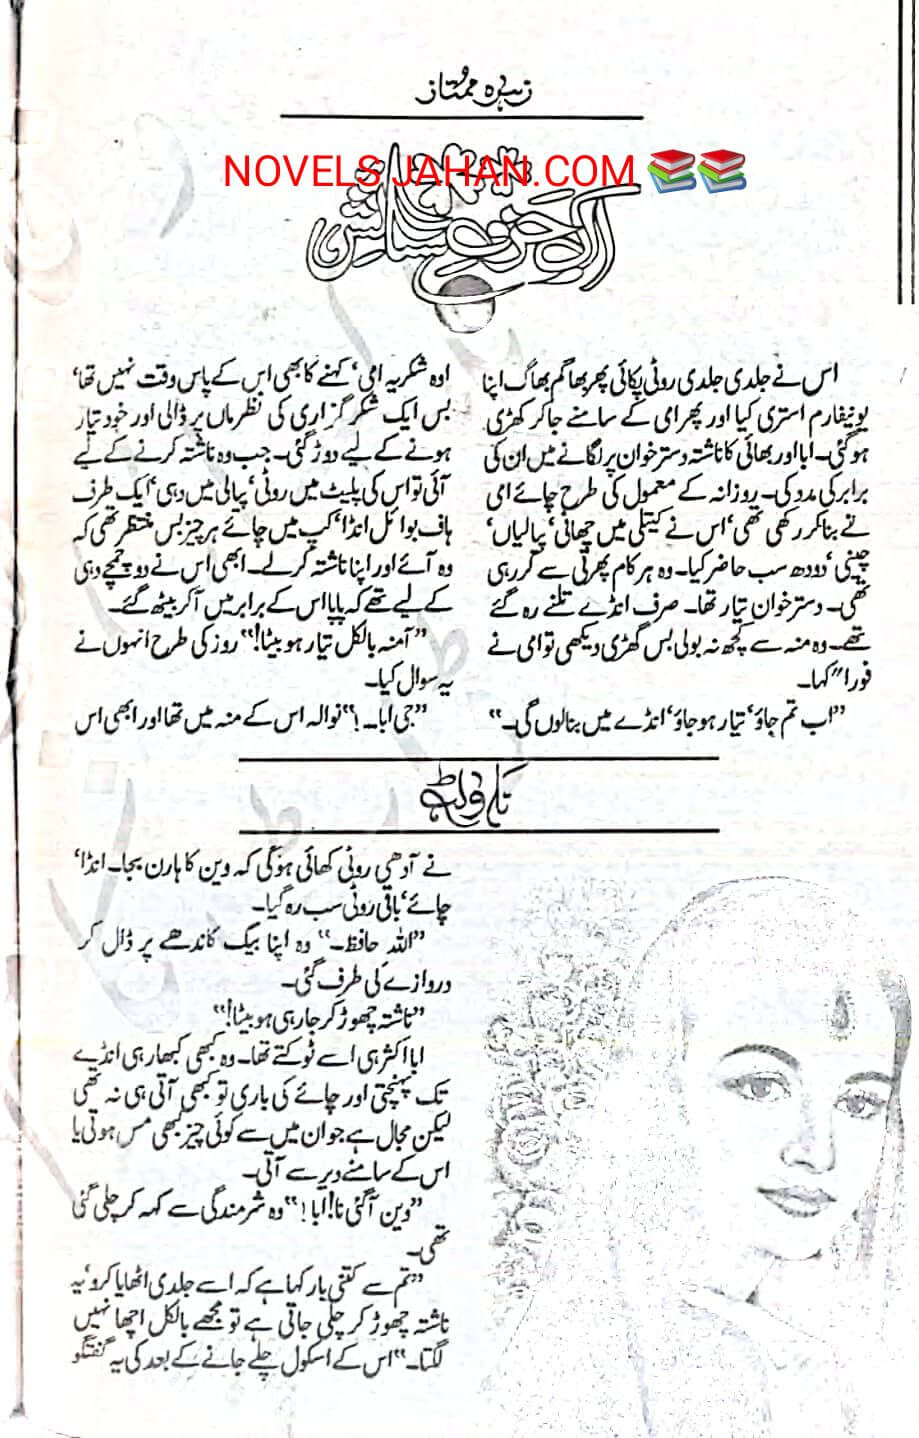 زہرہ ممتاز
NOVELS JAHAN.COM
اک حرف ستائش
اس نے جلدی جلدی روٹی پکائی پھر بھاگم بھاگ اپنا
یونیفارم استری کیا اور پھر امی کے سامنے جا کر کھڑی
ہو گئی۔ ابا اور بھائی کا ناشتہ دسترخوان پر لگانے میں ان کی
برابر کی مدد کی۔ روزانہ کے معمول کی طرح چائے امی
نے بنا کر رکھی تھی‘ اس نے کیتلی میں چھانی‘ پیالیاں‘
چینی‘ دودھ سب حاضر کیا۔ وہ ہر کام پھرتی سے کر رہی
تھی۔ دسترخوان تیار تھا۔ صرف انڈے تلنے رہ گئے
تھے۔ وہ منہ سے کچھ نہ بولی بس گھڑی دیکھی تو امی نے
فوراً کہا۔
”اب تم جاؤ‘ تیار ہو جاؤ‘ انڈے میں بنا لوں گی۔“
اوہ شکریہ امی‘ کہنے کا بھی اس کے پاس وقت نہیں تھا‘
بس ایک شکر گزاری کی نظر ماں پر ڈالی اور خود تیار
ہونے کے لیے دوڑ گئی۔ جب وہ ناشتہ کرنے کے لیے
آئی تو اس کی پلیٹ میں روٹی‘ پیالی میں دہی‘ ایک طرف
ہاف بوائل انڈا‘ کپ میں چائے ہر چیز بس منتظر تھی کہ
وہ آئے اور اپنا ناشتہ کر لے۔ ابھی اس نے دو چمچے دہی
کے لیے تھے کہ پاپا اس کے برابر میں آ کر بیٹھ گئے۔
”آمنہ بالکل تیار ہو بیٹا!“ روز کی طرح انہوں نے
یہ سوال کیا۔
”جی ابا۔!“ نوالہ اس کے منہ میں تھا اور ابھی اس
ناولٹ
نے آدھی روٹی کھائی ہو گی کہ وین کا ہارن بجا۔ انڈا‘
چائے‘ باقی روٹی سب رہ گیا۔
”اللہ حافظ۔“ وہ اپنا بیگ کاندھے پر ڈال کر
دروازے کی طرف گئی۔
”ناشتہ چھوڑ کر جا رہی ہو بیٹا!“
ابا اکثر ہی اسے ٹوکتے تھا۔ وہ کبھی کبھار ہی انڈے
تک پہنچتی اور چائے کی باری تو کبھی آتی ہی نہ تھی
لیکن مجال ہے جو ان میں سے کوئی چیز کبھی مس ہوتی یا
اس کے سامنے دیر سے آتی۔
”وین آ گئی نا! ابا!“ وہ شرمندگی سے کہہ کر چلی گئی
تھی۔
”تم سے کتنی بار کہا ہے کہ اسے جلدی اٹھایا کرو‘ یہ
ناشتہ چھوڑ کر چلی جاتی ہے تو مجھے بالکل اچھا نہیں
لگتا۔“ اس کے اسکول چلے جانے کے بعد کی یہ گفتگو